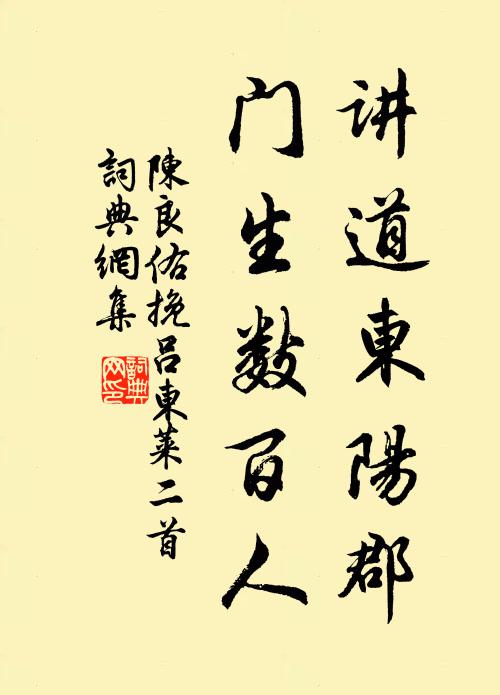 讲道東陽郡
门生数百人
陳良佑挽吕東萊二首
詞典網集
詞典網印